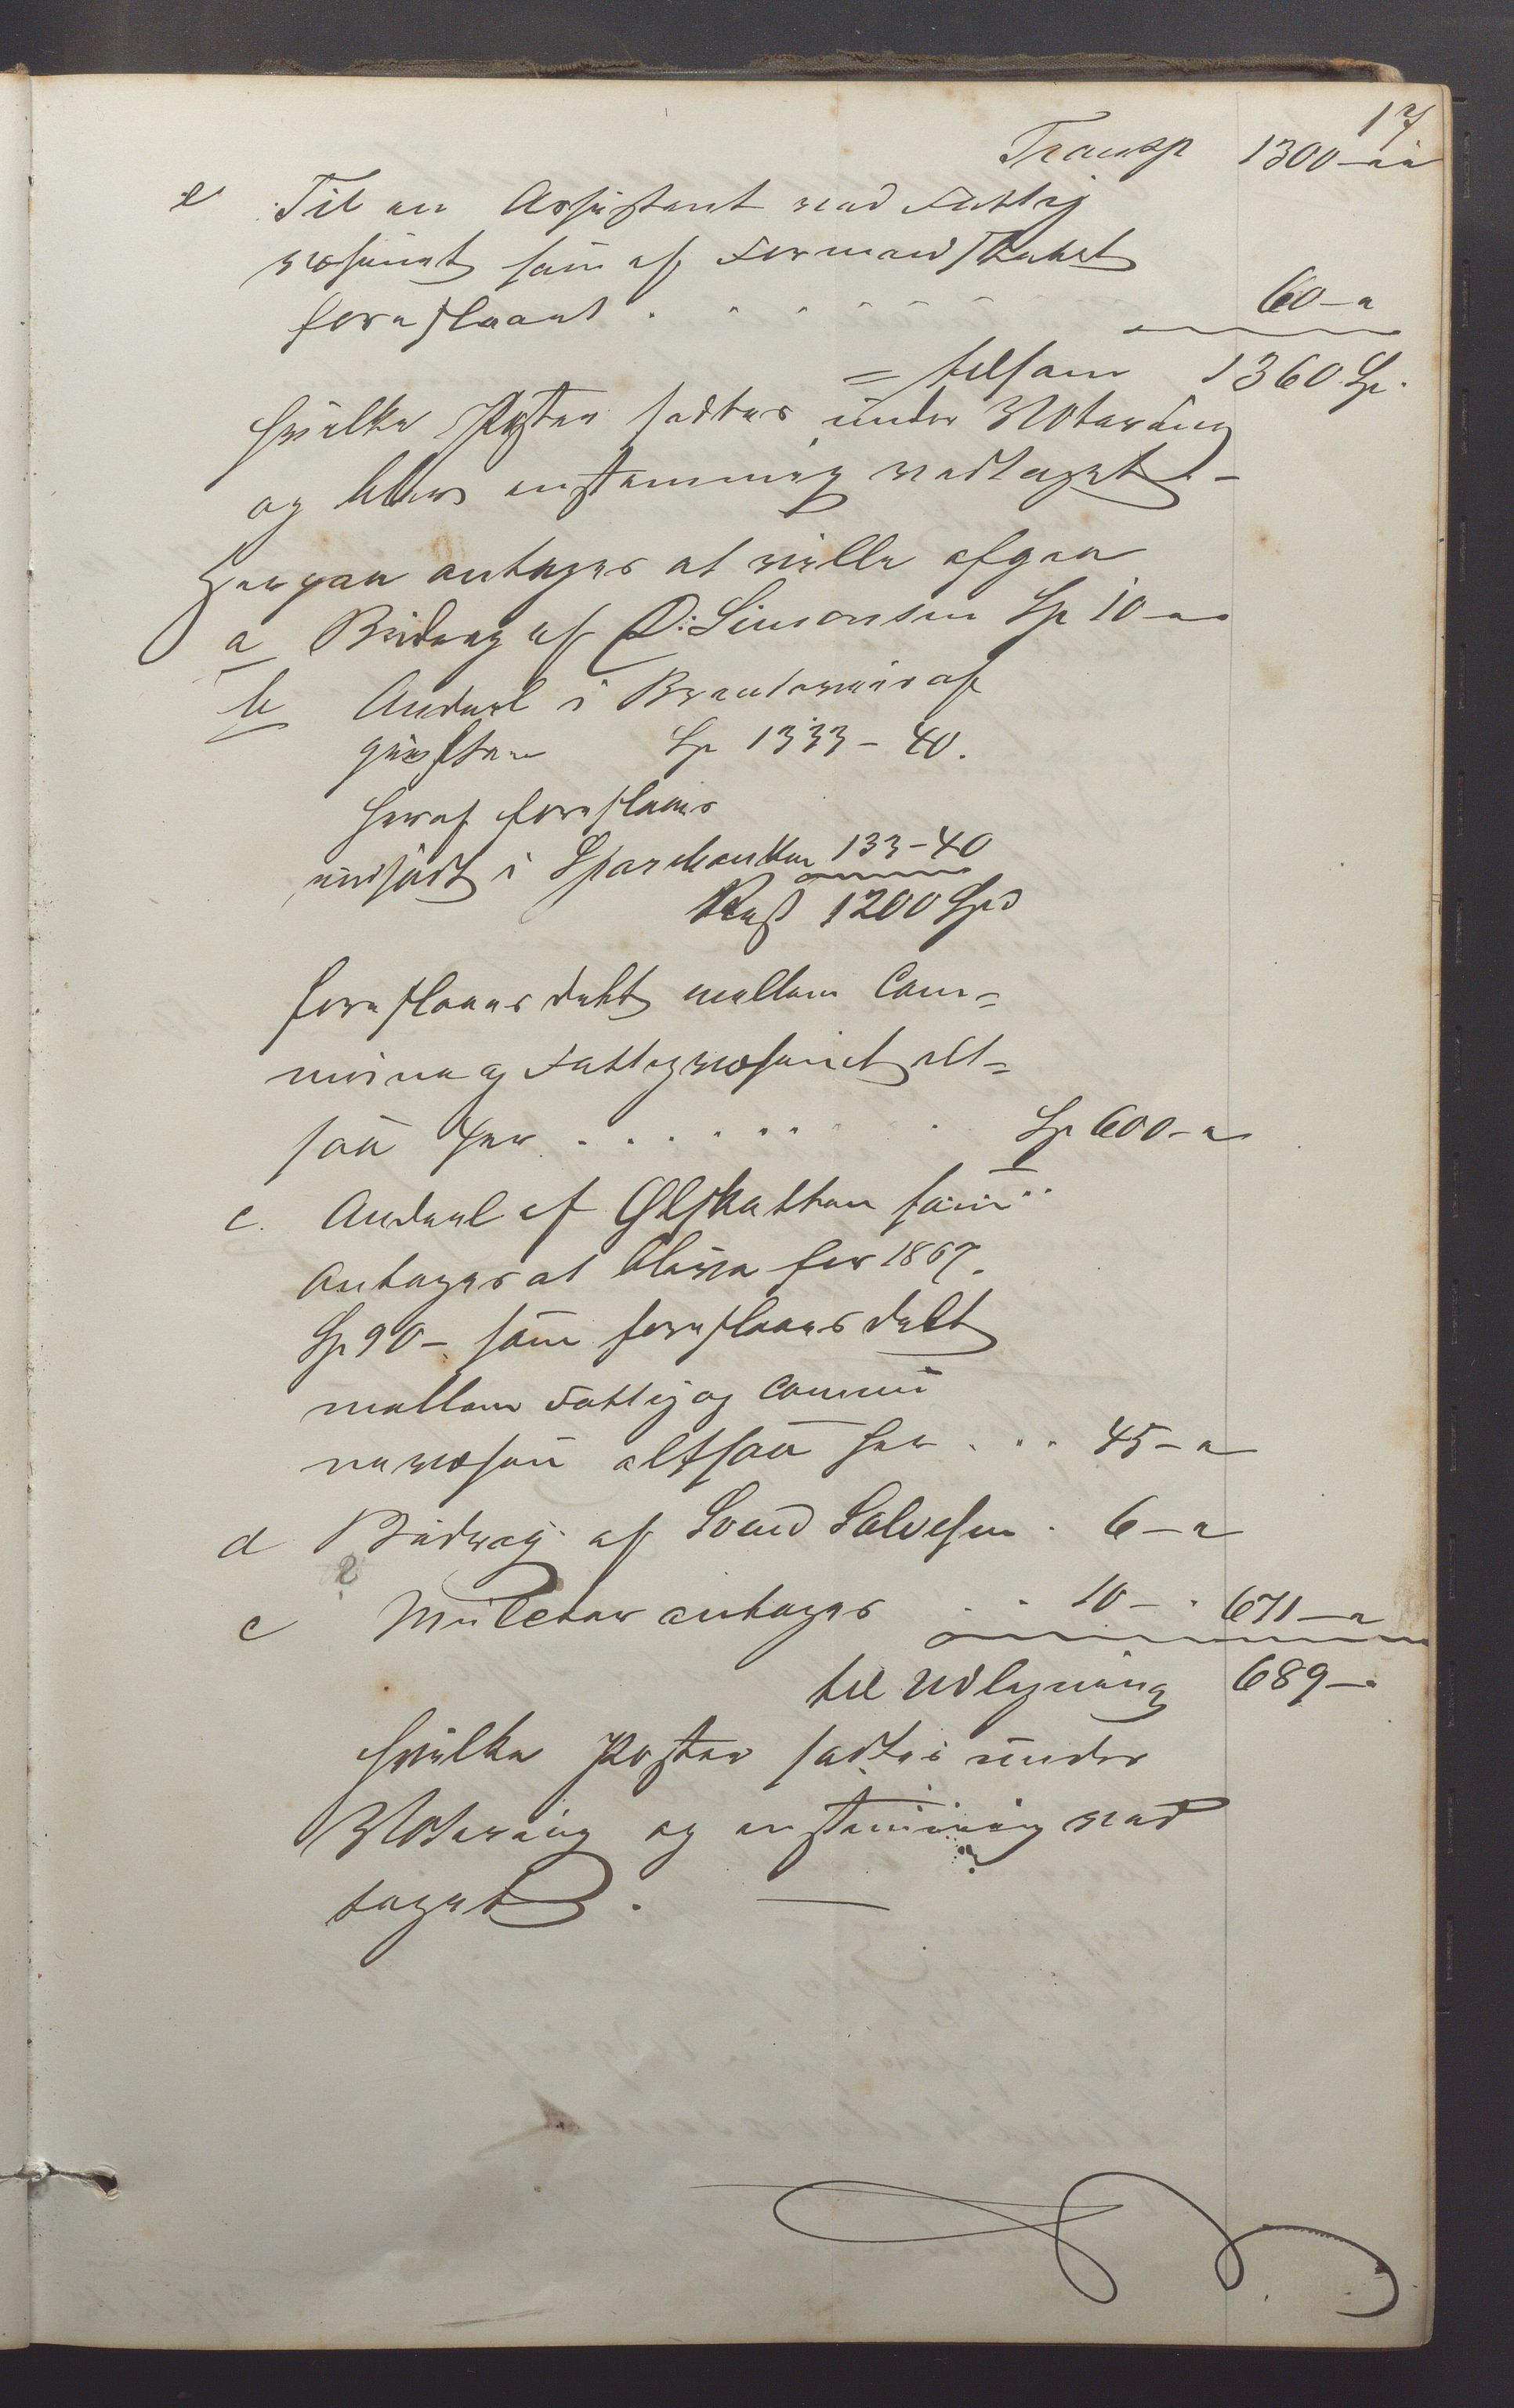 17
Transp 1300 - "
e Til en Assistent ved Fattig
væsenet som af Formandskabet
foreslaaet . . . . . . . 60 - "
= tilsam 1360 Sp.
Hvilke Poster sattes under Votering
og blev enstemmig vedtaget. -
Herpaa antages at ville afgaa
a Bidrag af P: Simonsen Sp 10 - "
b Andeel i Brændeviinsaf
giften Sp 1333 - 40.
heraf foreslaaes
indsadt i Sparebanken 133 - 40
Rest 1200 Spd
foreslaaes delt mellem Com=
mune og Fattigvæsenet alt=
saa her . . . . . . . . Sp 600 - "
c. Andeel af Ølskatten som
antages at blive for 1867.
Sp 90 - som foreslaaes delt
mellem Fattig og Commu
nevæsen altsaa her . . . 45 - "
d Bidrag af Svend Salvesen . 6 - "
e Mulcter antages . . 10 - . 671 - "
til Udligning 689 - "
Hvilke Poster sattes under
Votering og enstemmig ved
taget . —